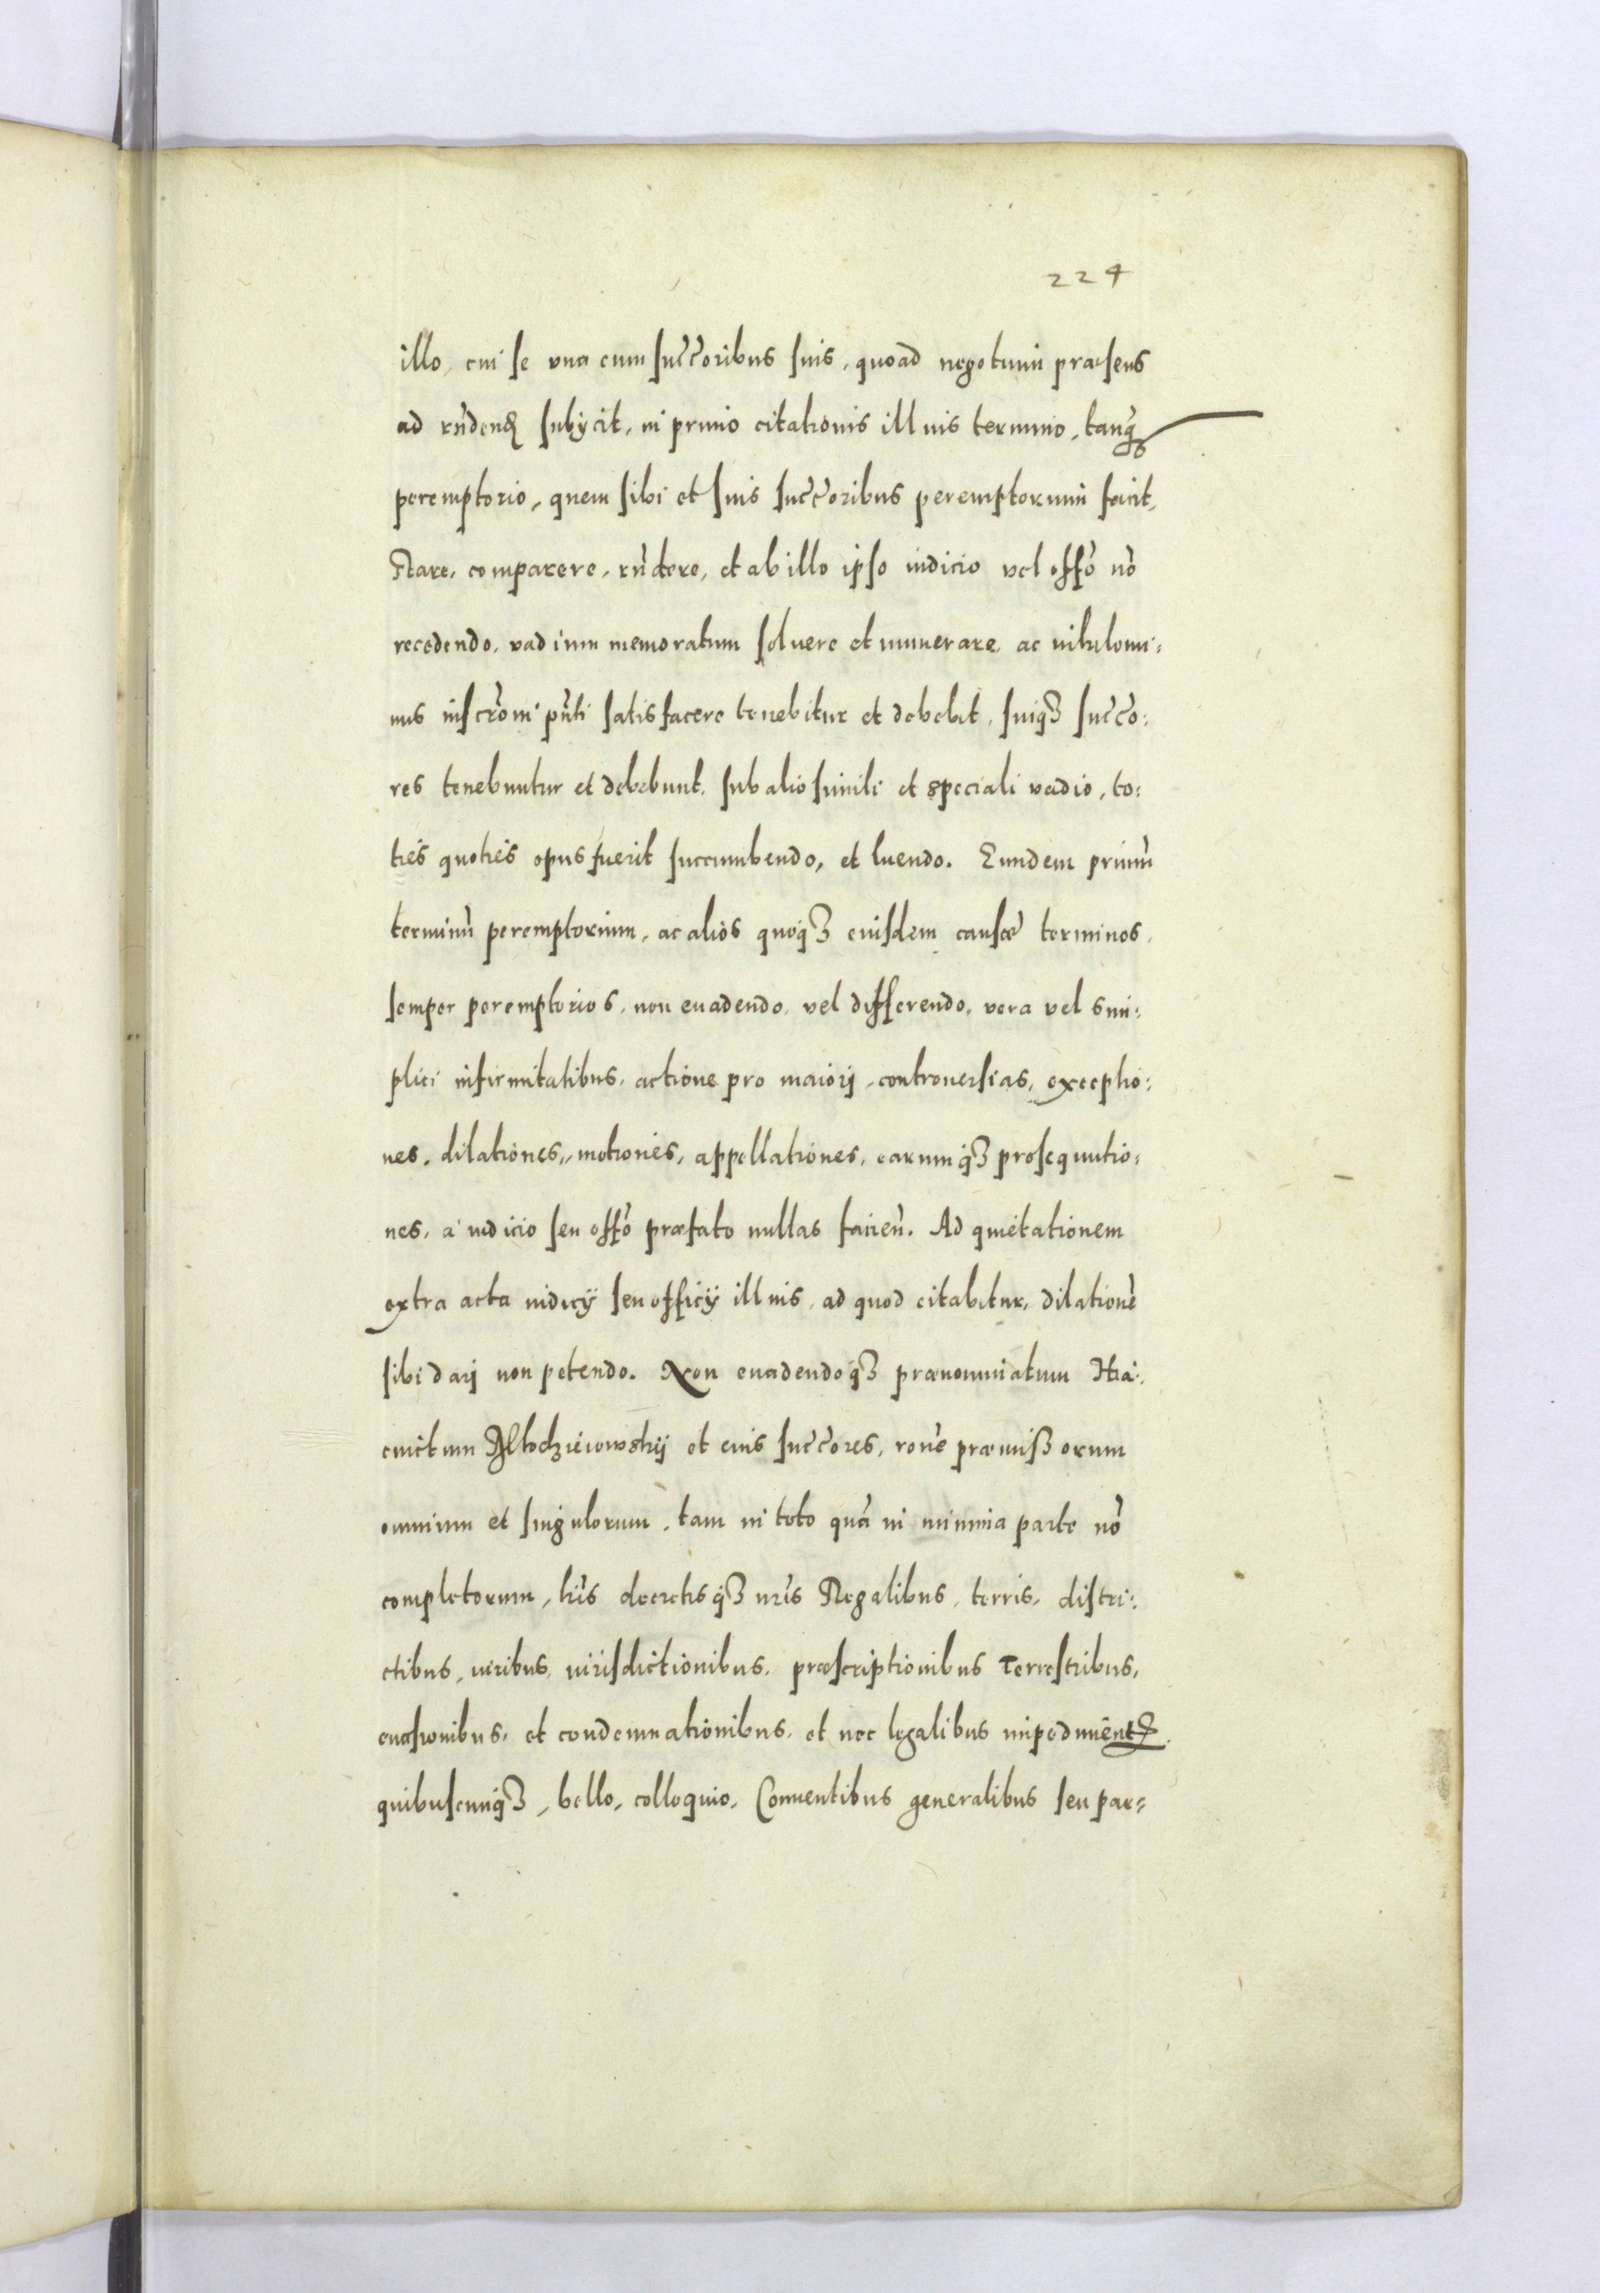 224
illo, cui se vna cum succ̃oribus suis, quoad negotium præsens
ad rñdend subijcit, in primo citationis illius termino, tanq̃
peremptorio, quem sibi et suis succ̃oribus peremptorium facit,
stare, comparere, rñdere, et ab illo ipso iudicio vel offõ nõ
recedendo, vadium memoratum soluere et numerare, ac nihilomi:
nus inscrõni pñti satisfacere tenebitur et debebit, suiq3 succõ:
res tenebuntur et debebunt, sub alio simili et speciali vadio, to:
ties quoties opus fuerit succumbendo, et luendo. Eundem primũ
terminũ peremptorium, ac aliòs quoq3 eiusdem causæ terminos,
semper peremptorios, non euadendo, vel differendo, vera vel sim:
plici infirmitatibus, actione pro maiorj, controuersias, exceptio:
nes, dilationes, motiones, appellationes, earumq3 prosequutio:
nes, à iudicio seu offõ præfato nullas facieñ. Ad quietationem
extra acta iudicij seu officij illius, ad quod citabitur, dilationẽ
sibi darj non petendo. Non euadendoq3 prænominatum Hia:
cinctum Młodziieiowskij et eius succ̃ores, rõne præmissorum
omnium et singulorum, tam in toto quã in minima parte nõ
completorum, lris̃ decretisq3 nris̃ Regalibus, terris, distri:
ctibus, iuribus, iurisdictionibus, præscriptionibus Terrestribus,
euasionibus, et condemnationibus, et nec legalibus impedimẽnt
quibuscunq3, bello, colloquio, Conuentibus generalibus seu par: